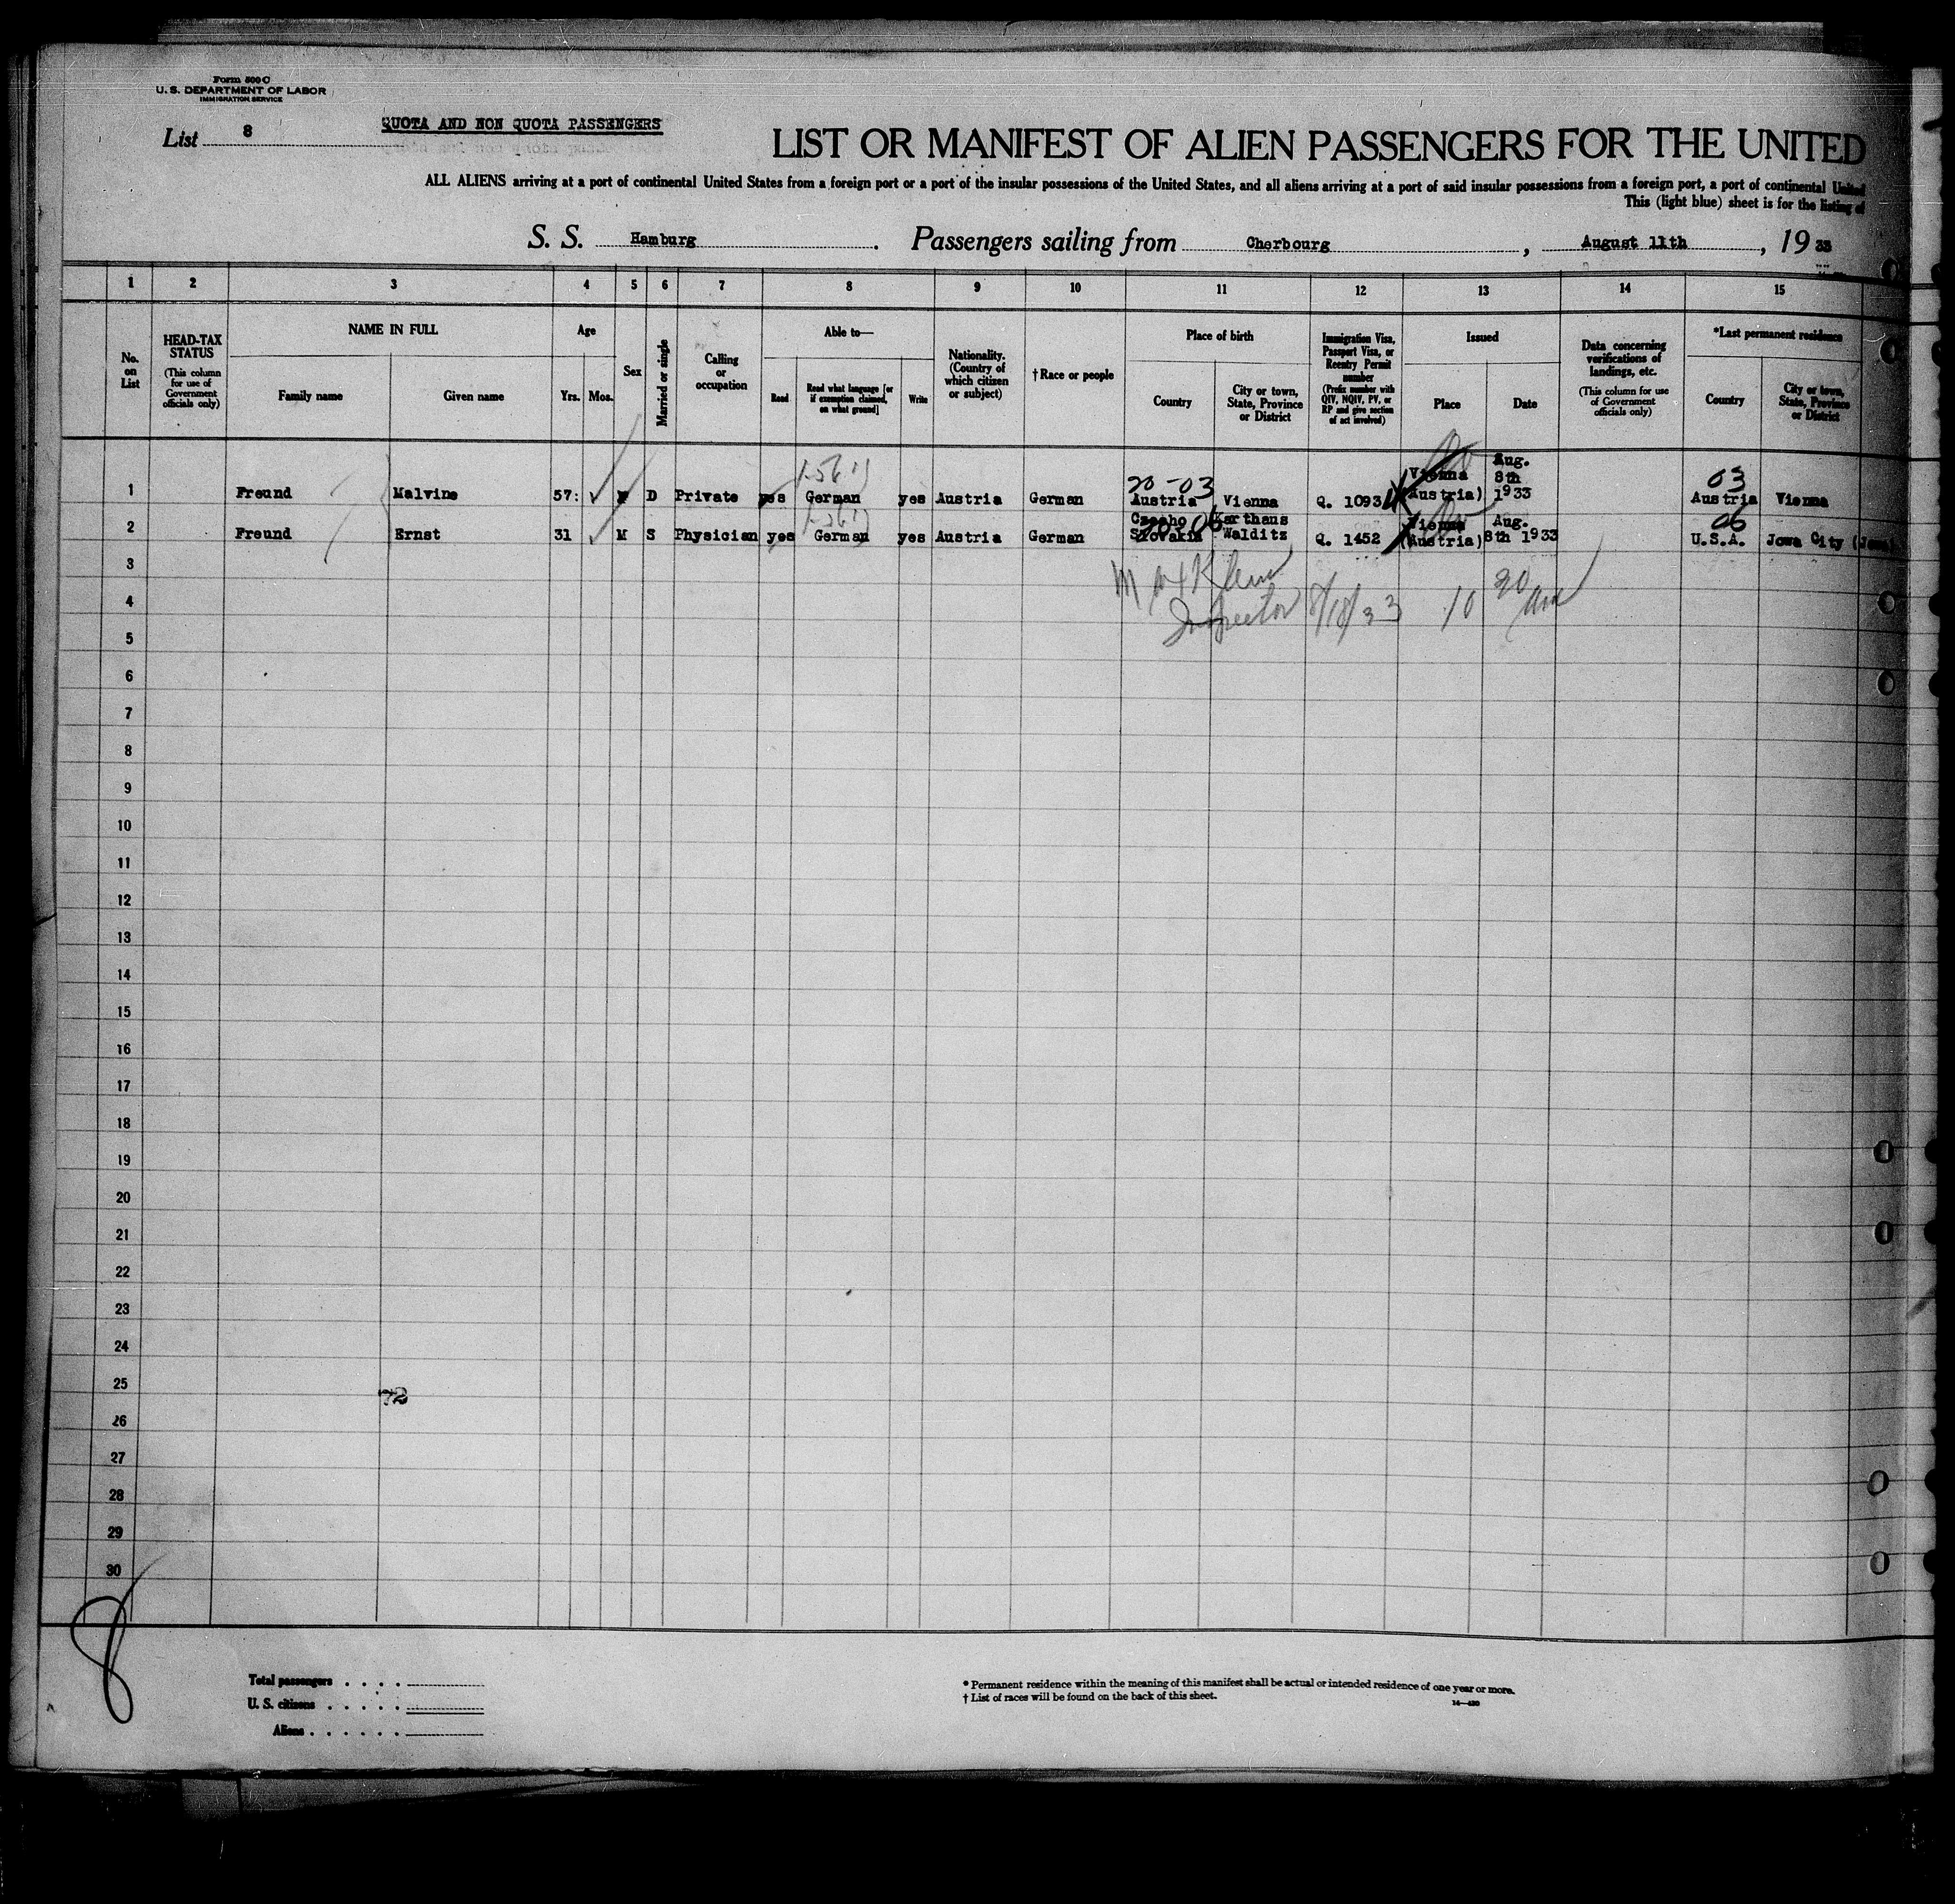 Form 500 C
U. S. DEPARTMENT OF LABOR
IMMIGRATION SERVICE
List 8
QUOTA AND NON QUOTA PASSENGERS
LIST OR MANIFEST OF ALIEN PASSENGERS FOR THE UNITED
ALL ALIENS arriving at a port of continental United States from a foreign port or a port of the insular possessions of the United States, and all aliens arriving at a port of said insular possessions from a foreign port, a port of continental United
This (light blue) sheet is for the listing of
S. S. Hamburg. Passengers sailing from Cherbourg, August 11th, 19 33
1 2 3 4 5 6 7 8 9 10 11 12 13 14 15
No. on List
HEAD-TAX STATUS
(This column for use of Government officials only)
NAME IN FULL
Family name Given name
Age
Yrs. Mos.
Sex
Married or single
Calling or occupation
Able to—
Read
Read what language [or if exemption claimed, on what ground]
Write
Nationality. (Country of which citizen or subject)
† Race or people
Place of birth
Country
City or town, State, Province or District
Immigration Visa, Passport Visa, or Reentry Permit number
(Prefix number with QIV, NQIV, PV, or RP and give section of act involved)
Issued
Place Date
Data concerning verifications of landings, etc.
(This column for use of Government officials only)
*Last permanent residence
Country
City or town, State, Province or District
20-03
03
1 Freund Malvine 57: D Private yes German yes Austria German Austria Vienna Q. 1093 Vienna (Austria) Aug. 8th 1933 Austria Vienna
06
2 Freund Ernst 31 M S Physician yes German yes Austria German Czecho Slovakia Karthaus Walditz Q. 1452 Vienna (Austria) Aug. 8th 1933 U.S.A. Jowa City
3
4
Inspector 8/18/33 10 20 am
5
6
7
8
9
10
11
12
13
14
15
16
17
18
19
20
21
22
23
24
25
72
26
27
28
29
30
8
Total passengers . . . .
U. S. citizens . . . . .
Aliens . . . . . .
* Permanent residence within the meaning of this manifest shall be actual or intended residence of one year or more.
† List of races will be found on the back of this sheet.
14—430